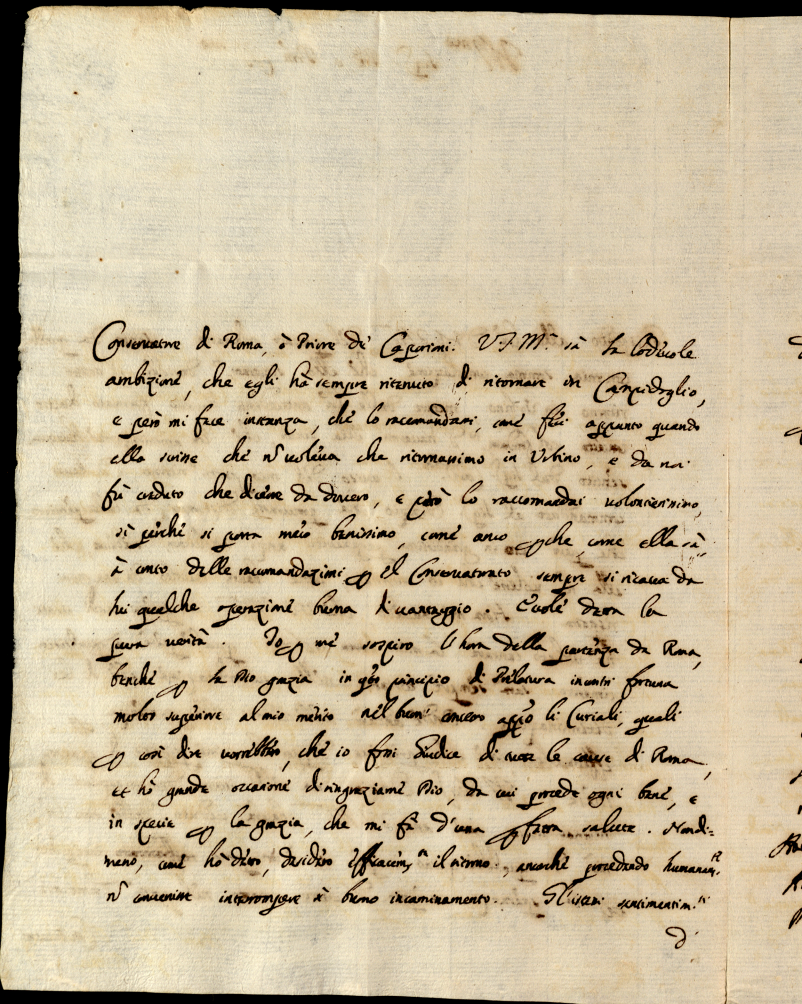 Conservatore di Roma, ò Priore de' Caporioni. V.S. Ill.ma sà la lodevole
ambizione, che egli hà sempre ritenuto di ritornare in Campidoglio,
e però mi fece instanza, che lo racomandassi, come feci appunto quando
ella scrisse che nõ voleva che ritornassimo in Urbino, e da noi
fù creduto che dicesse da dovero, e però lo raccomandai volontierissimo,
sì perche si porta meco benissimo, come anco p che, come ella sà,
à conto delle racomandazioni p il Conservatorato sempre si ricava da
lui qualche operazione buona di vantaggio. E vole detta la
pura verità. Io p me sospiro l'hora della partenza da Roma,
benche p la Dio grazia in qto principio di Prelatura incontri fortuna
molto superiore al mio merito nel buon concetto appo li Curiali, quali
p così dire vorrebbero, che io fossi Giudice di tutte le cause di Roma,
et hò grande occasione di ringraziarne Dio, da cui procede ogni bene, e
in specie p la grazia, che mi fà d'una pfetta salute. Nondi=
meno, come hò detto, desidero efficacem.te il ritorno, ancorche procedendo humanam.te
nõ convenisse interrompere il buono incaminamento. Gl'istessi sentimenti
d'